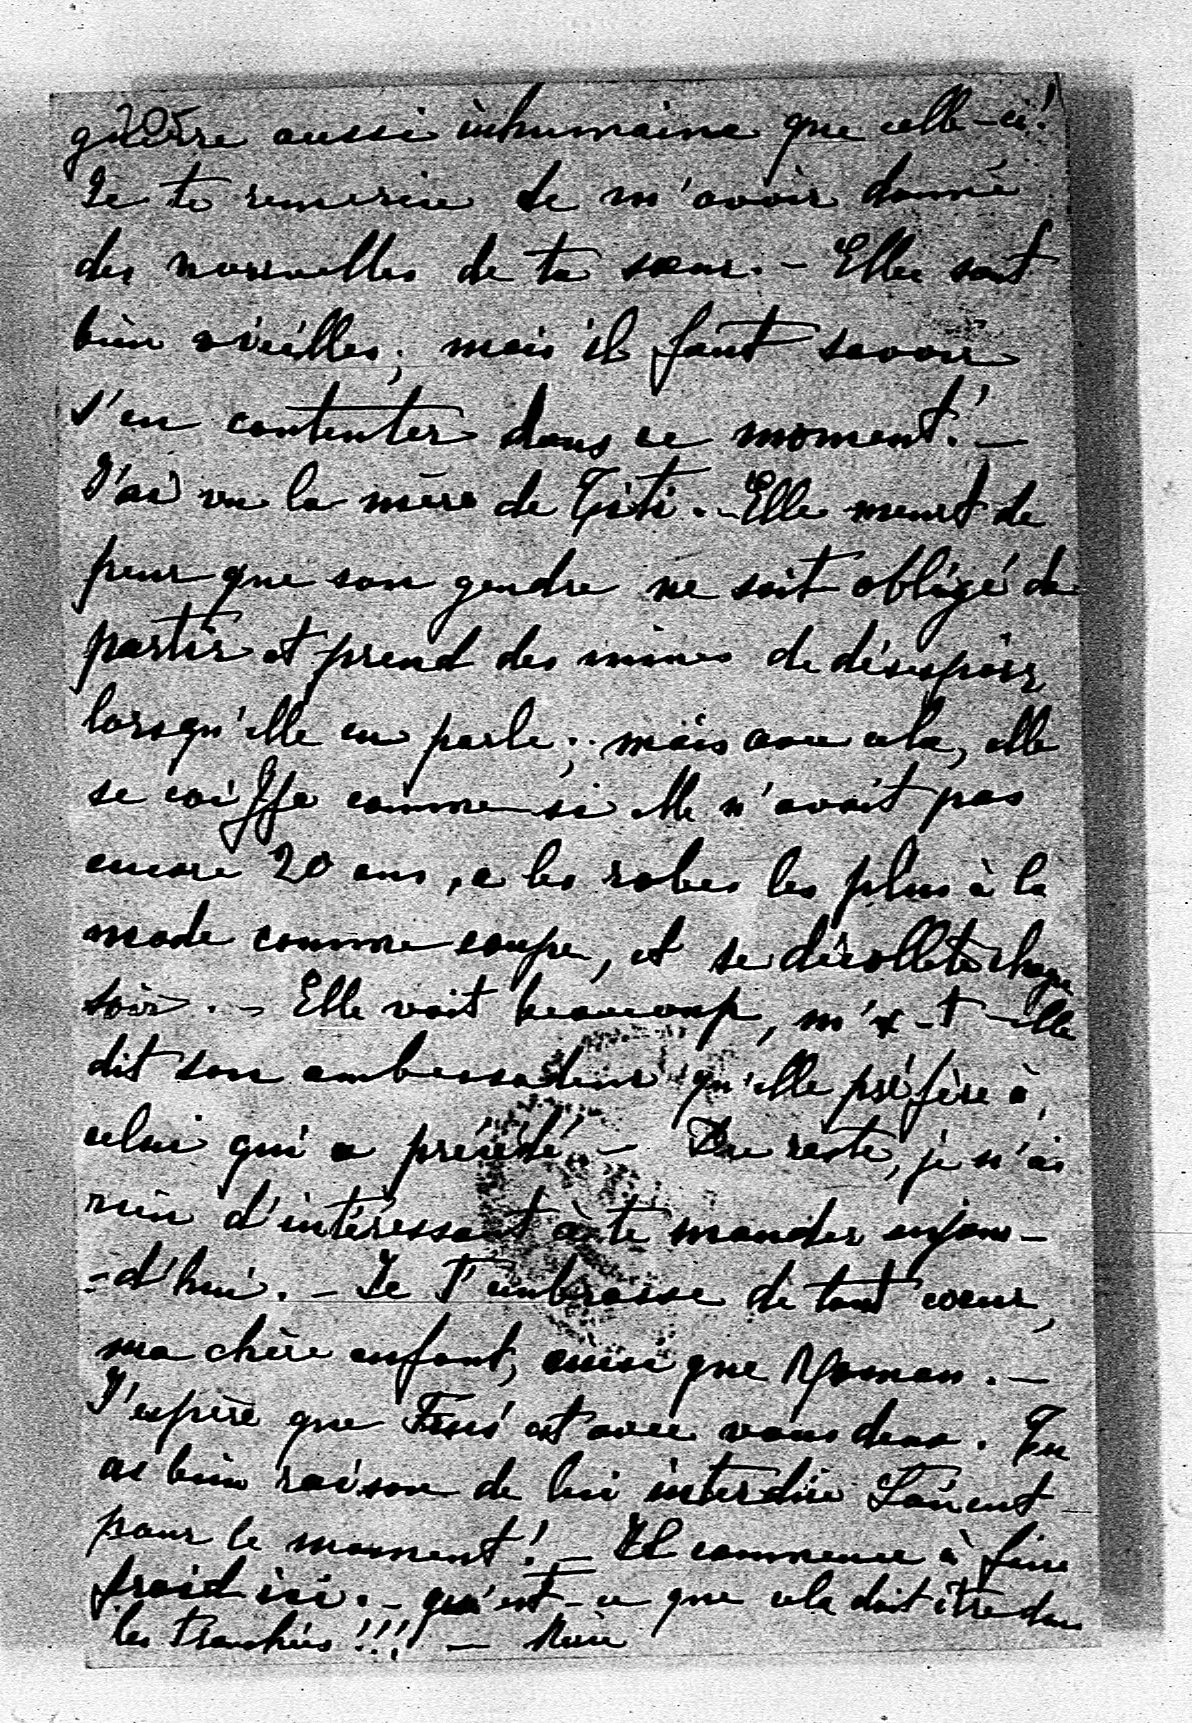 205
guerre aussi inhumaine que celle-ci!
Je te remercie de m'avoir donné
des nouvelles de ta sœur. - Elles sont
bien vieilles; mais il faut savoir
s'en contenter dans ce moment! -
J'ai vu la mère de Titi. - Elle meurt de
peur que son gendre ne soit obligé de
partir et prend des mines de désespoir
lorsqu'elle en parle; mais avec cela, elle
se coiffe comme si elle n'avait pas
encore 20 ans, a les robes les plus à la
mode comme coupe, et se décollète chaque
soir. - Elle voit beaucoup, m'a-t-elle
dit son ambassadeur qu'elle préfère à
celui qui a précédé. - Du reste, je n'ai
rien d'intéressant à te mander aujour-
-d'hui. - Je t'embrasse de tout cœur,
ma chère enfant, ainsi que Maman. -
J'espère que est avec vous deux. Tu
as bien raison de lui interdire
pour le moment! - Il commence à faire
froid ici. - qu'est-ce que cela doit être dans
les tranchées!!! -